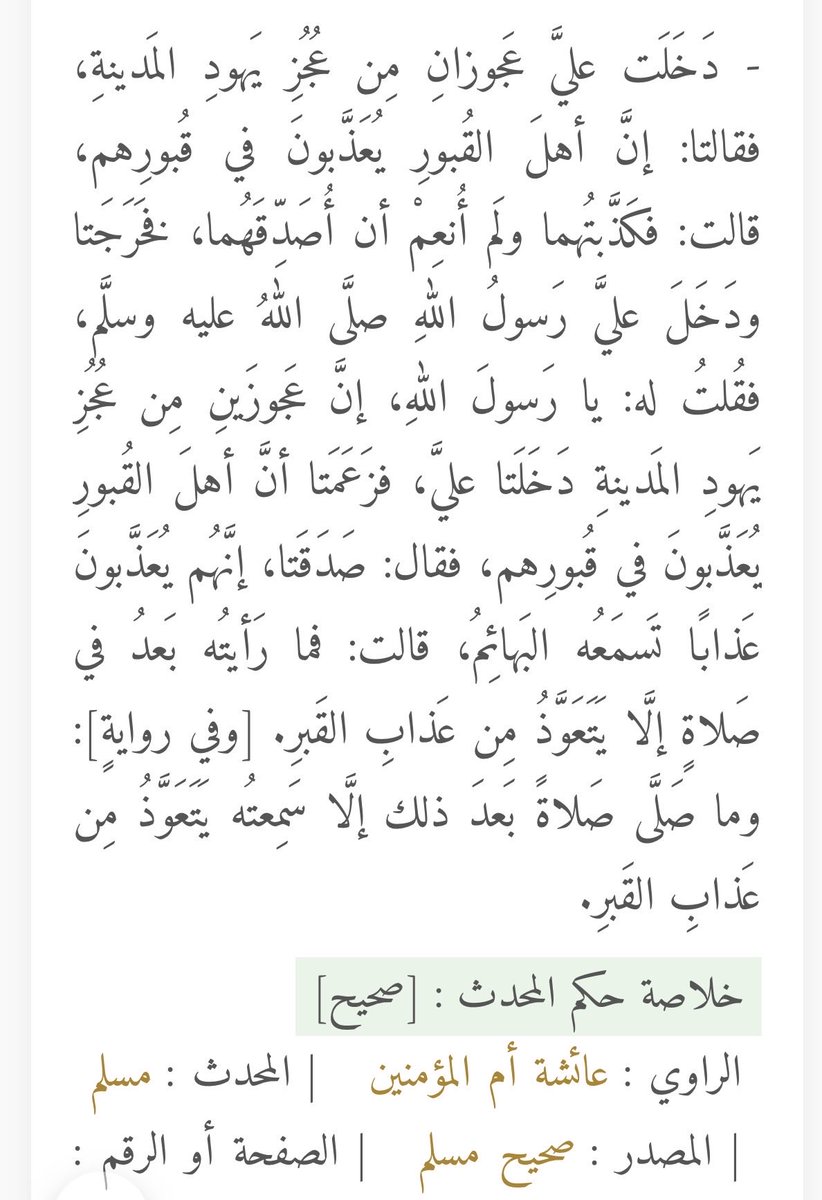 - دَخَلَت عليَّ عَجوزانِ مِن عُجُزِ يَهودِ المَدينةِ،
فقالتا: إنَّ أهلَ القُبورِ يُعَذَّبونَ في قُبورِهم،
قالت: فكَذَّبتُهما ولَم أُنعِمْ أن أُصَدِّقَهُما، فخَرَجَتا
ودَخَلَ عليَّ رَسولُ اللهِ صلَّى اللهُ عليه وسلَّم،
فقُلتُ له: يا رَسولَ اللهِ، إنَّ عَجوزَينِ مِن عُجُزِ
يَهودِ المَدينةِ دَخَلَتا عليَّ، فزَعَمَتا أنَّ أهلَ القُبورِ
يُعَذَّبونَ في قُبورِهم، فقال: صَدَقَتا، إنَّهُم يُعَذَّبونَ
عَذابًا تَسمَعُه البَهائِمُ، قالت: فما رَأيتُه بَعدُ في
صَلاةٍ إلَّا يَتَعَوَّذُ مِن عَذابِ القَبرِ. [وفي روايةٍ]:
وما صَلَّى صَلاةً بَعدَ ذلك إلَّا سَمِعتُه يَتَعَوَّذُ مِن
عَذابِ القَبرِ.
خلاصة حكم المحدث : [صحيح]
الراوي : عائشة أم المؤمنين | المحدث : مسلم
| المصدر : صحيح مسلم | الصفحة أو الرقم :